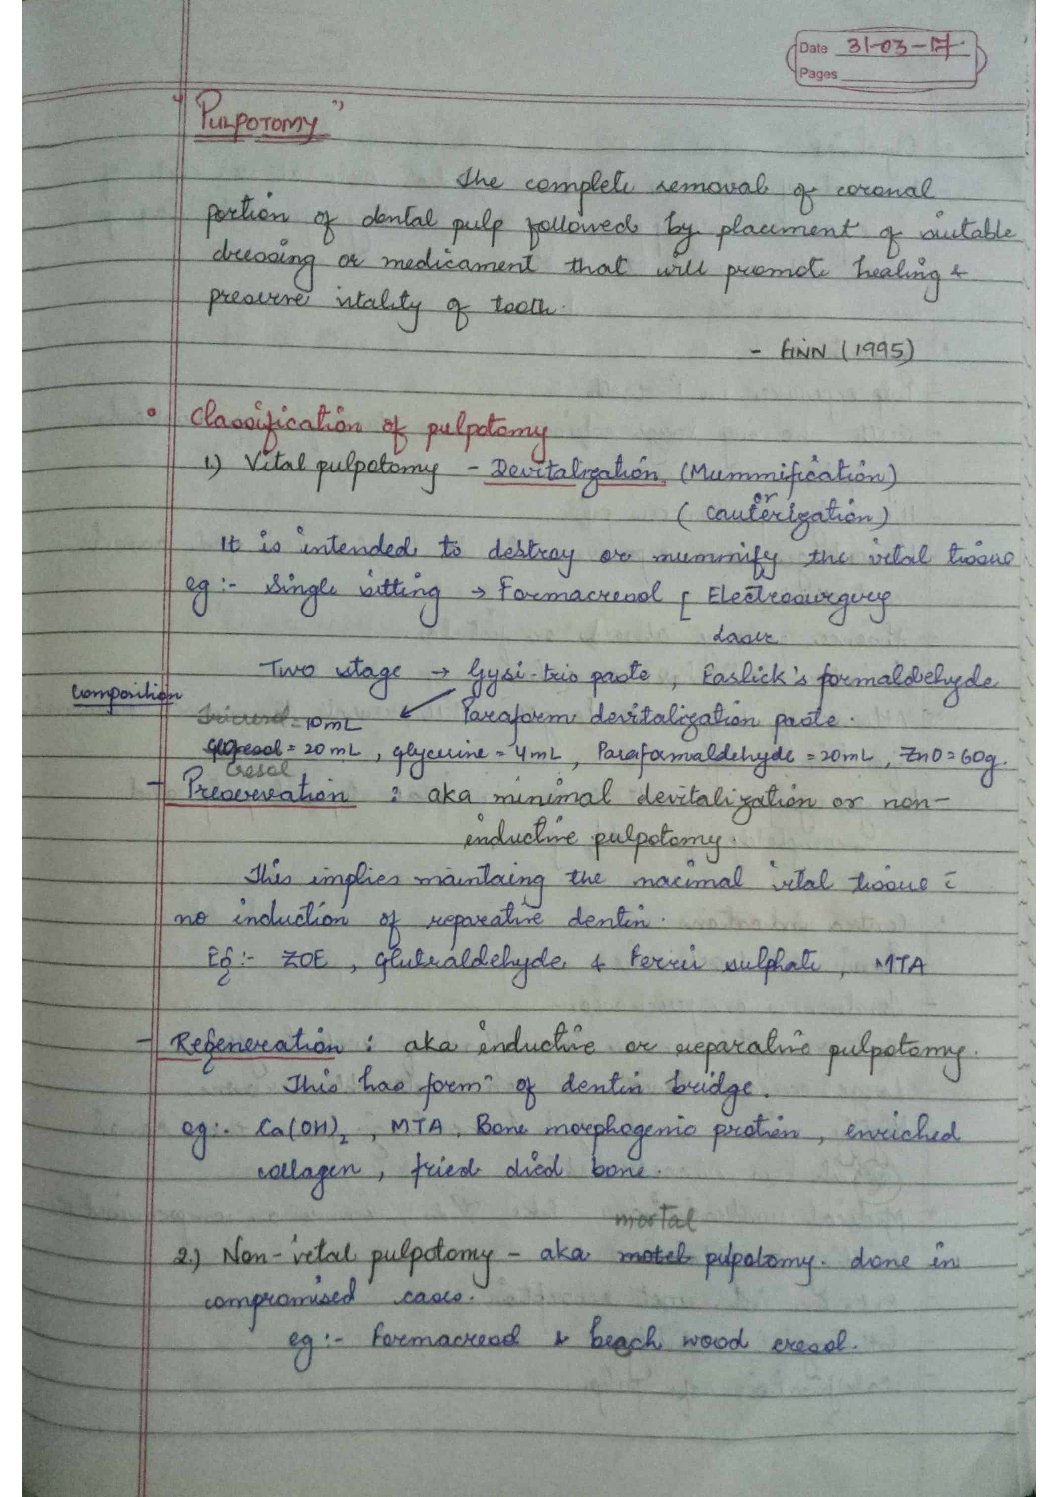 Date 31-03-17
Pages
" Pulpotomy "
The complete removal of coronal
portion of dental pulp followed by placement of suitable
dressing or medicament that will promote healing &
preserve vitality of tooth.
- FINN (1995)
• Classification of pulpotomy
1.) Vital pulpotomy - Devitalization (Mummification)
or
( cauterization )
It is intended to destroy or mummify the vital tissue
eg :- Single sitting → Formacresol [ Electrosurgery
Laser
Two stage → Gysi-trio paste , Easlick's formaldehyde
Composition
Paraform devitalization paste.
= 10mL
= 20mL , glycerine = 4mL , Paraformaldehyde = 20mL , ZnO = 60g.
Cresol
- Preservation : aka minimal devitalization or non-
inductive pulpotomy.
This implies maintaing the maximal vital tissue c̄
no induction of reparative dentin.
Eg :- ZOE , Gluteraldehyde & Ferric sulphate , MTA
- Regeneration : aka inductive or reparative pulpotomy.
This has formⁿ of dentin bridge.
eg :- Ca(OH)₂ , MTA , Bone morphogenic protien , enriched
collagen , fried died bone.
mortal
2.) Non-vital pulpotomy - aka motel pulpotomy. done in
compromised cases.
eg :- Formacresol & beach wood cresol.